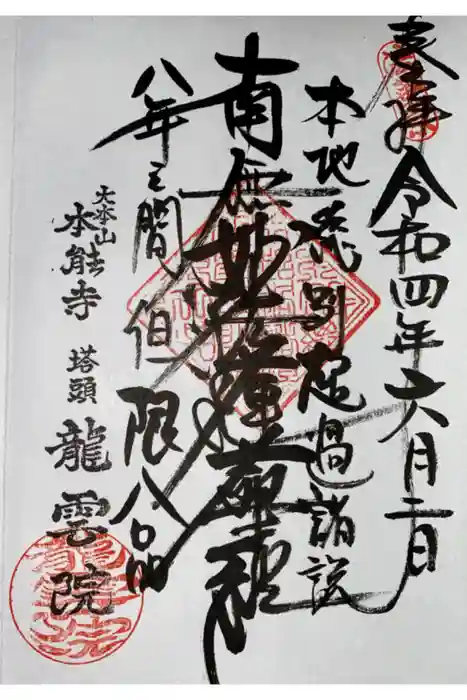 奉拝 令和四年六月二日
本地流別起過諸説
南無妙法蓮華経
八年之間但限八品
大本山
本能寺 塔頭 龍雲院